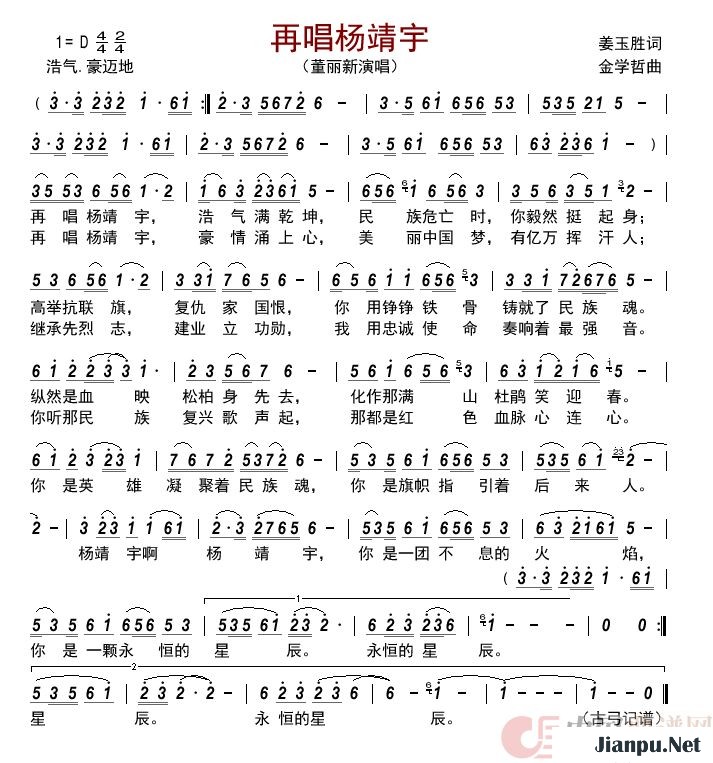 再唱杨靖宇
1= D 4/4 2/4
姜玉胜词
浩气.豪迈地
（董丽新演唱）
金学哲曲
( 3·3 232 1·61 :|| 2·3 5672 6 - | 3·5 61 656 53 | 535 21 5 - |
3·3 232 1·61 | 2·3 5672 6 - | 3·561 6561 5653 | 63 2361 - ) |
35 53 6 56 1·2 | 1 6 3 2361 5 - | 656 1 6 5 3 | 5356 351 2 - |
再 唱 杨靖 宇， 浩 气 满乾 坤， 民 族危亡 时，你毅然 挺 起 身；
再 唱 杨靖 宇， 豪 情 涌上 心， 美 丽中国 梦，有亿万 挥 汗 人；
5 3 6 56 1·2 | 3 31 7 6 5 6 - | 6 56 1 1 656 3 | 3 31 72676 5 - |
高举抗联 旗， 复仇 家 国恨， 你 用铮铮 铁 骨 铸就了 民 族 魂。
继承先烈 志， 建业 立 功勋， 我 用忠诚 使 命 奏响着 最 强 音。
6 1 6 1 2 2 3 3 1 | 2 2 5 3 2 1 - | 6 5 6 5 6 5 3 | 6 3 2 3 6 5 - |
纵然是血 映 松柏 身 先去， 化作那满 山 杜鹃 笑 迎 春。
你听那民 族 复兴 歌 声起， 那都是红 色 血脉 心 连 心。
6 1 2 3 23 1 | 7 67 2 5372 6 - | 3 35 61 656 53 | 535 6 1 2 - |
你 是英 雄 凝 聚着 民 族 魂， 你 是旗帜 指 引着 后 来 人。
2 - 3 23 1 1 61 | 2·3 2765 6 - | 3 35 6 1 656 5 3 | 6 3 2161 5 - |
杨靖 宇啊 杨 靖 宇， 你 是一团 不 息的 火 焰，
( 3·3 232 1·61 )
5 3 5 6 1 656 5 3 | 5356 1 323 2· | 6 1 2 3 236 | 1 - - - | 0 0 :||
1
你 是 一颗永 恒的 星 辰。 永恒的 星 辰。
2
5 3 5 6 1 | 2 2 3 2 · | 6 1 2 2 3 6 | 1 - - - | 1 - 1 0 ||
星 辰。 永 恒的星 辰。 （古弓记谱）
Jianpu.Net